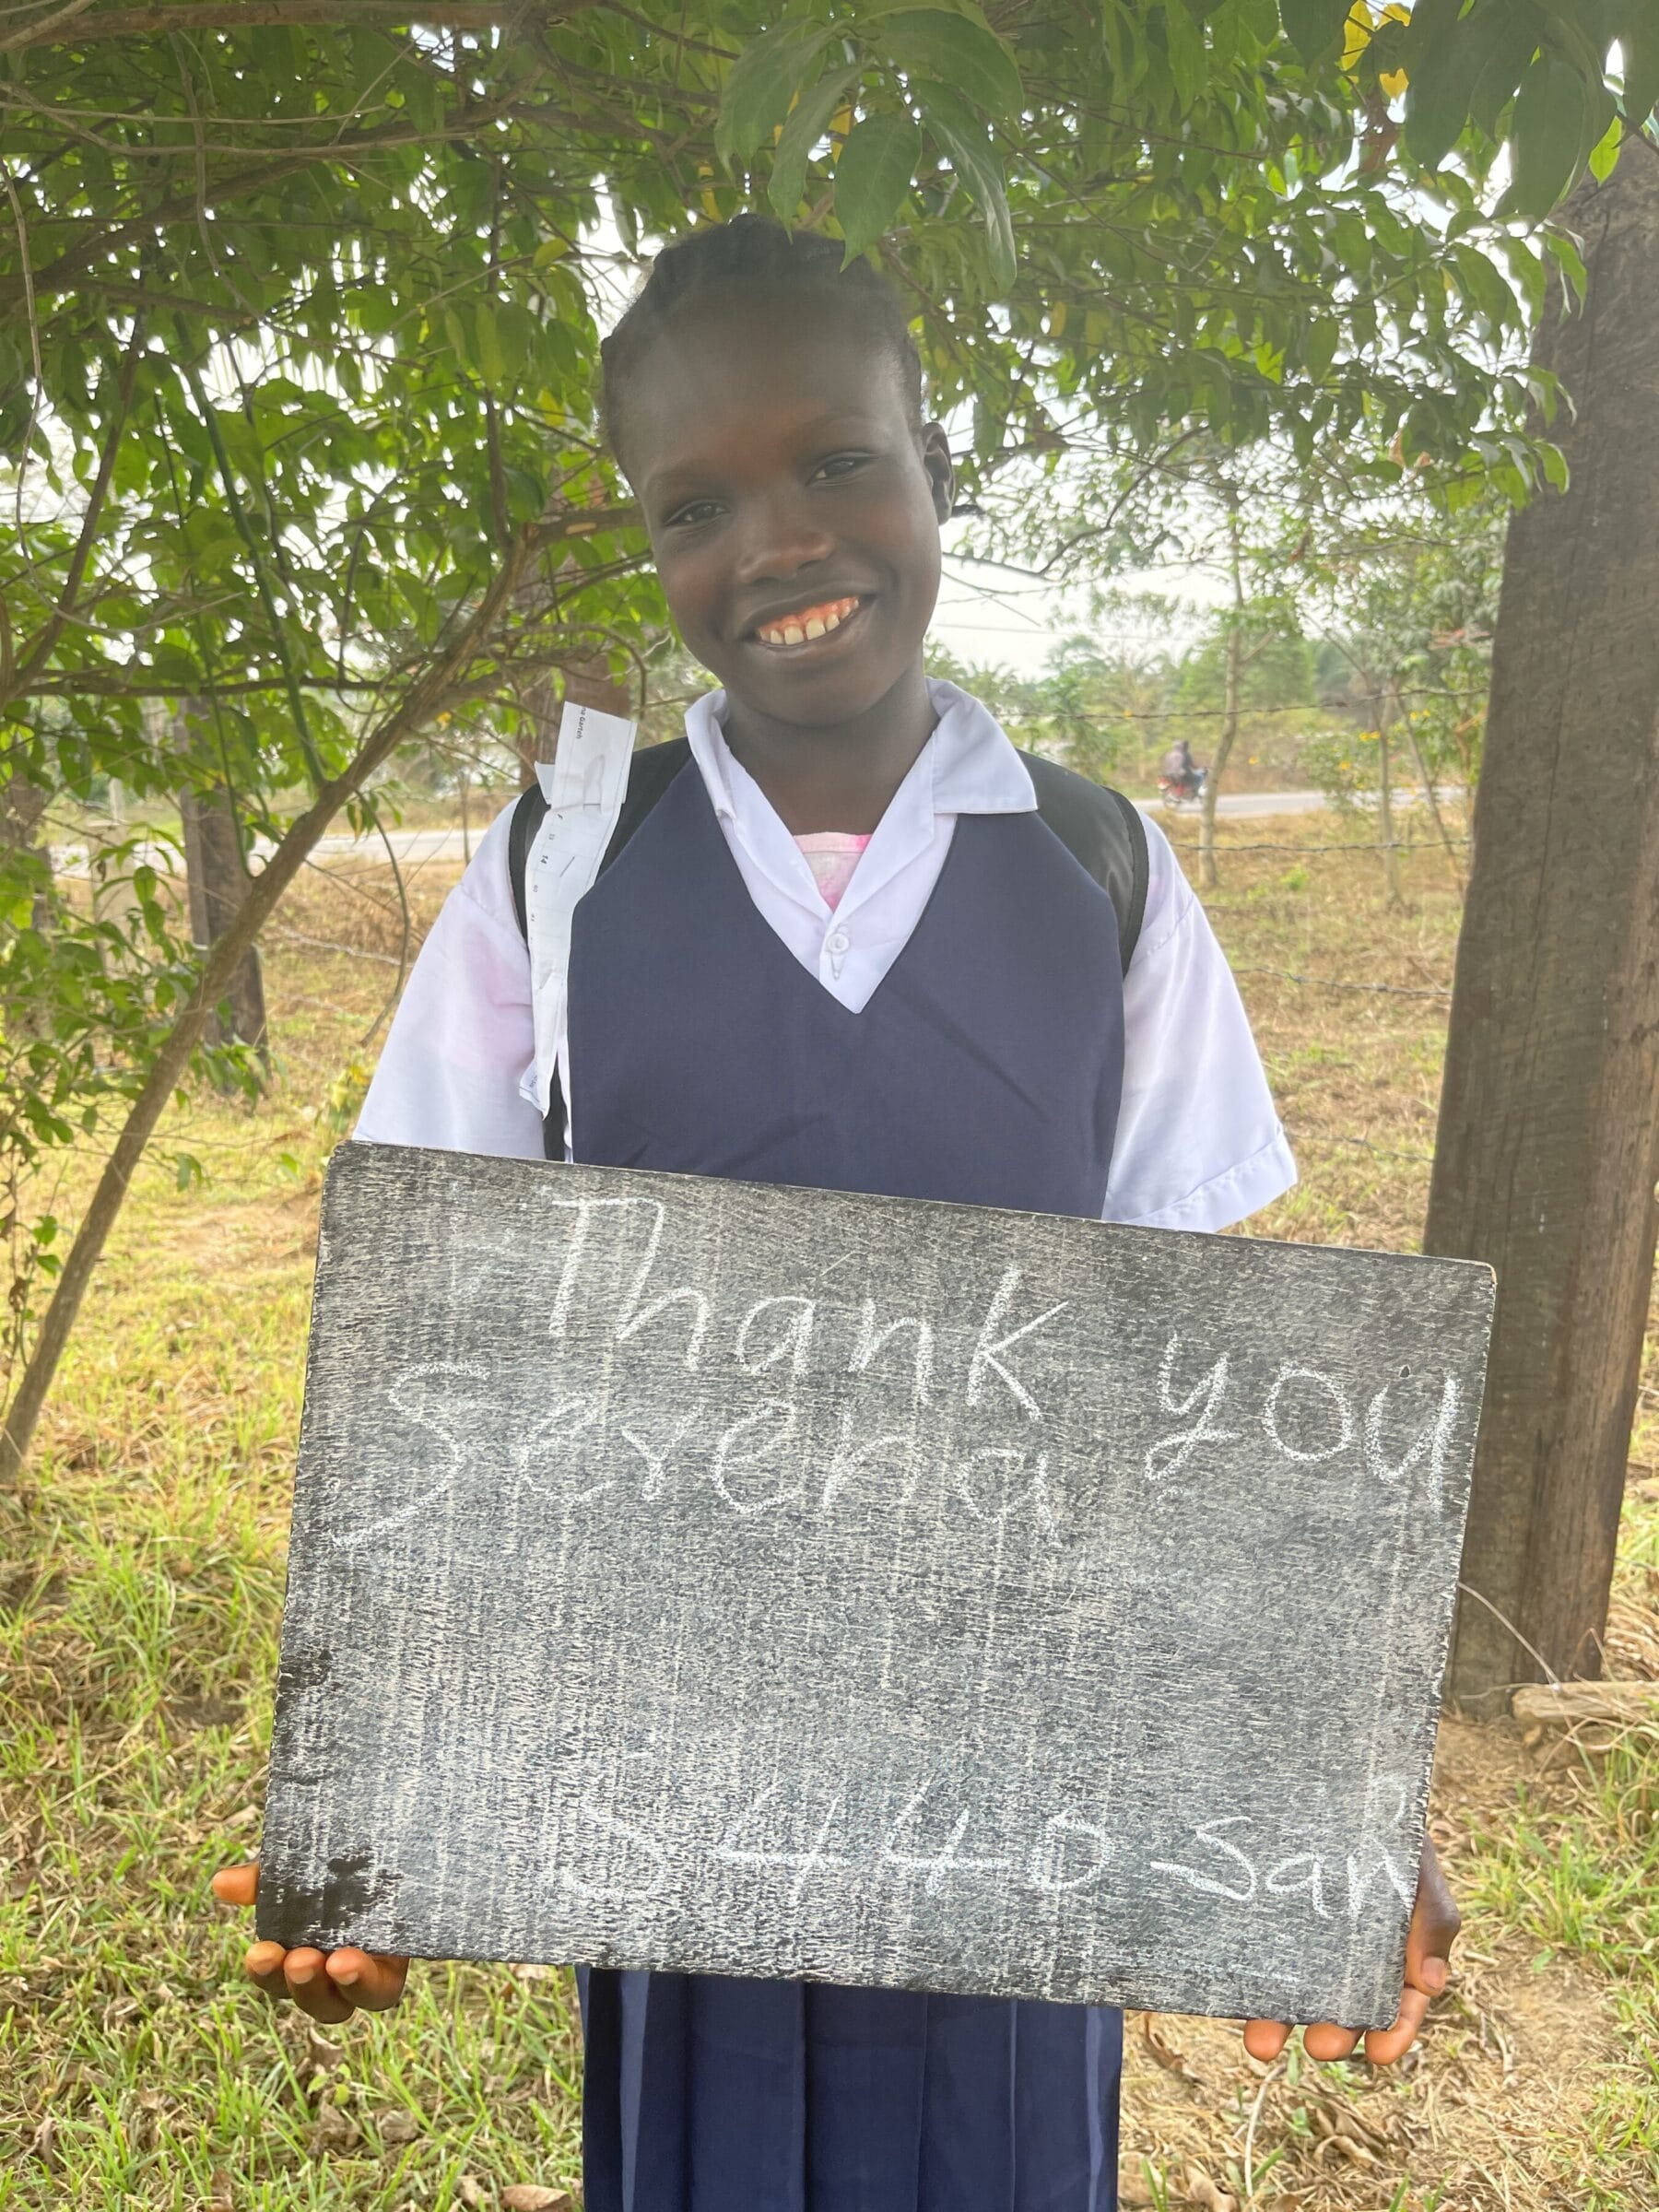 Thank you
Serena
S440-San
14